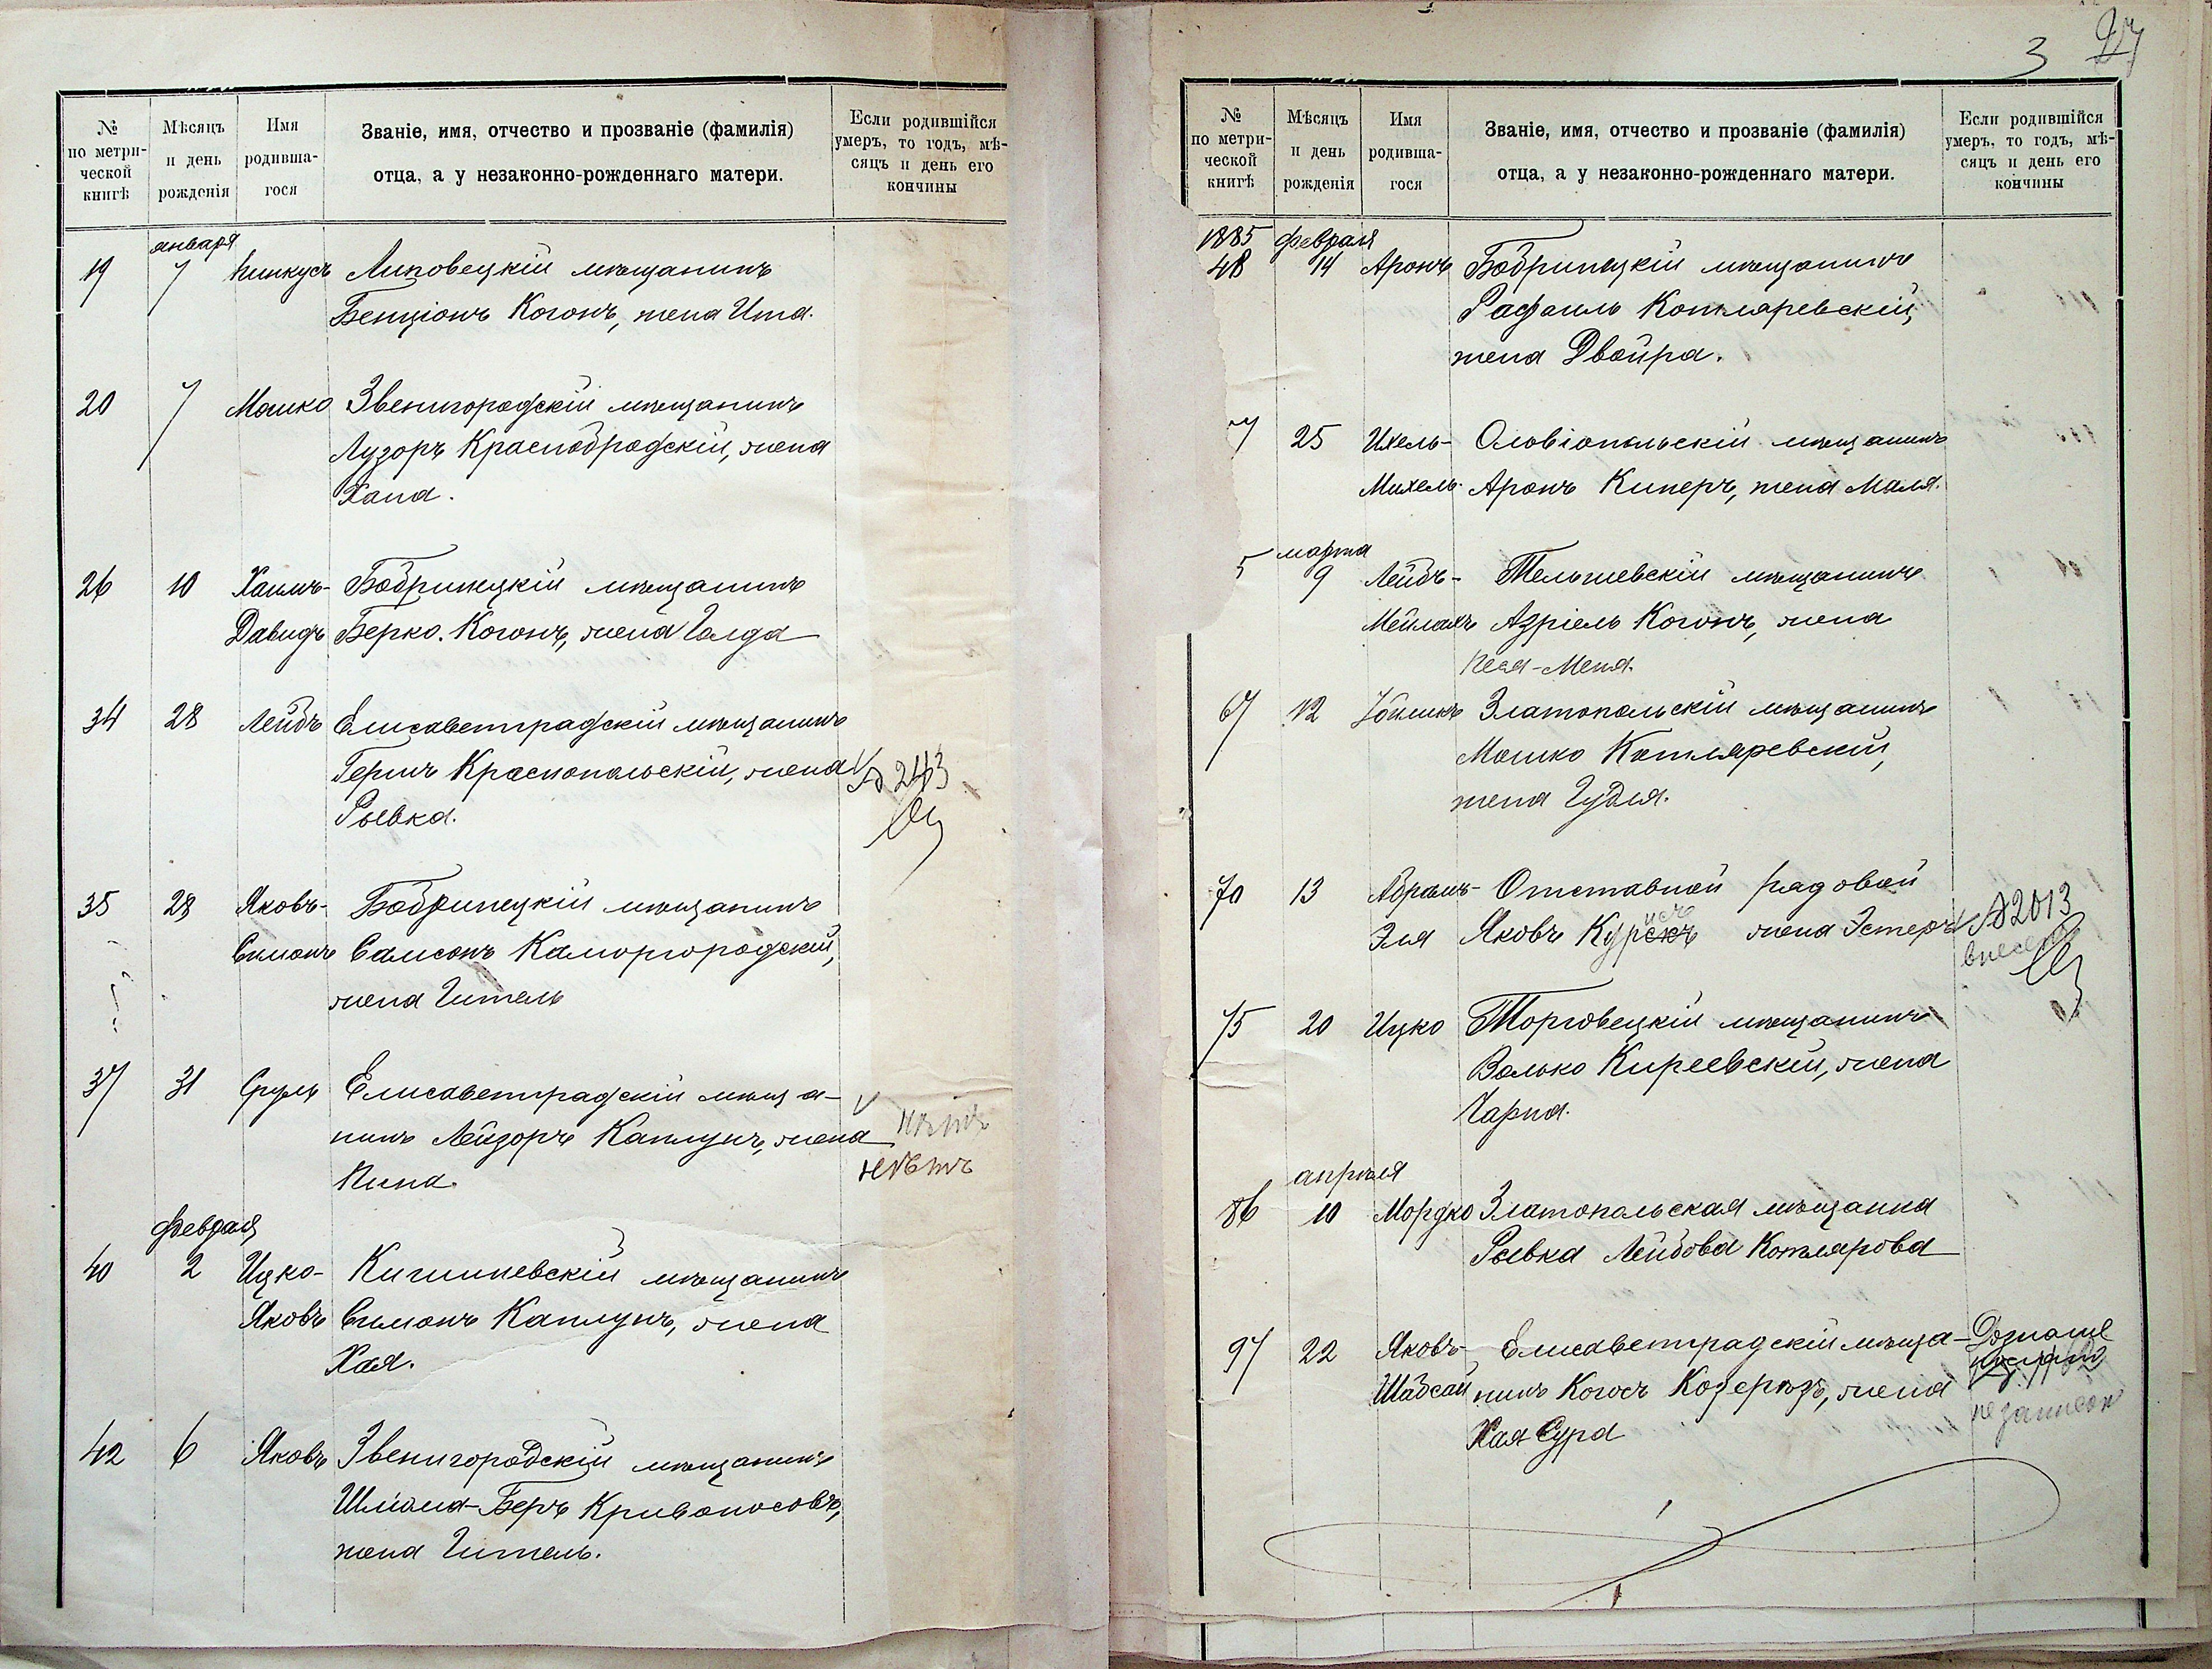 №
по метри-
ческой
книгѣ
Мѣсяцъ
и день
рожденія
Имя
родивша-
гося
Званіе, имя, отчество и прозваніе (фамилія)
отца, а у незаконно-рожденнаго матери.
Если родившійся
умеръ, то годъ, мѣ-
сяцъ и день его
кончины
января
19 7 Пинкусъ Липовецкій мѣщанинъ
Бенціонъ Когонъ, жена Ита.
20 7 Мошко Звенигородскій мѣщанинъ
Лузоръ Краснобродскій, жена
Хана.
26 10 Хаимъ- Бобринецкій мѣщанинъ
Давидъ Берко Когонъ, жена Голда
34 28 Лейбъ Елисаветградскій мѣщанинъ
Гершъ Краснопольскій, жена № 243
Рывка.
35 28 Яковъ- Бобринецкій мѣщанинъ
Симонъ Самсонъ Каморгородскій,
жена Гитель
37 31 Сруль Елисаветградскій мѣща-
нинъ Лейзоръ Каплунъ, жена нѣтъ
Пина. нѣтъ
февраля
40 2 Ицко- Кишиневскій мѣщанинъ
Яковъ Симонъ Каплунъ, жена
Хая.
42 6 Яковъ Звенигородскій мѣщанинъ
Шліома-Беръ Кривоносовъ,
жена Гитель.
3 27
№
по метри-
ческой
книгѣ
Мѣсяцъ
и день
рожденія
Имя
родивша-
гося
Званіе, имя, отчество и прозваніе (фамилія)
отца, а у незаконно-рожденнаго матери.
Если родившійся
умеръ, то годъ, мѣ-
сяцъ и день его
кончины
1885 февраля
48 14 Аронъ Бобринецкій мѣщанинъ
Рафаилъ Котляревскій,
жена Двойра.
7 25 Ихель- Ольвіопольскій мѣщанинъ
Михель Аронъ Киперъ, жена Маля.
марта
5 9 Лейбъ- Тельшевскій мѣщанинъ
Мейлахъ Азріель Когонъ, жена
Песя-Меня.
67 12 Златопольскій мѣщанинъ
Мошко Котляревскій,
жена Гудля.
70 13 Абрамъ- Отставной рядовой
Эля Яковъ Курскъ жена Эстеръ № 2013
внесенъ
75 20 Ицко Торговецкій мѣщанинъ
Волько Киреевскій, жена
Чарна.
апрѣля
86 10 Мордко Златопольская мѣщанка
Рывка Лейбова Котлярова
97 22 Яковъ- Елисаветградскій мѣща- Дознаніе
Шабсай нинъ Когосъ Козерогъ, жена
Хая Сура не записан